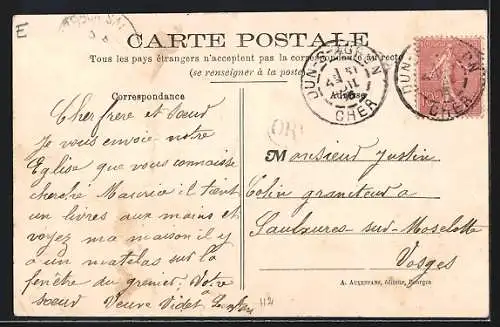 E
CARTE POSTALE
Tous les pays étrangers n'acceptent pas la correspondance au recto
(se renseigner à la poste)
Correspondance
Adresse
DUN-S-AURON
CHER
DUN
CHER
OR
Cher frère et sœur
je vous envoie notre
Eglise que vous connaissez
cherche Maurice il tient
un livres aux mains et
voyez ma maison il y
a un matelas sur la
fenêtre du grenier. Votre
sœur Veuve Videt
Monsieur Justin
Colin graniteur à
Saulxures-sur-Moselotte
Vosges
A. AUXENFANS, éditeur, Bourges
112